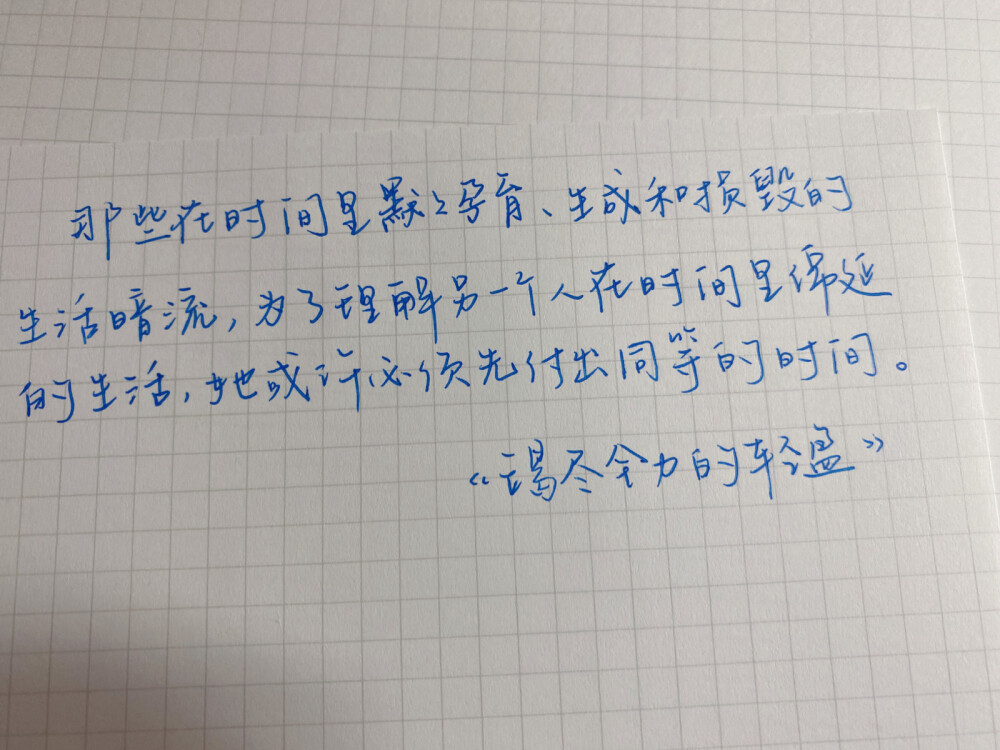 那些在时间里默默孕育、生成和损毁的
生活暗流，为了理解另一个人在时间里绵延
的生活，她或许必须先付出同等的时间。
《竭尽全力的轻盈》